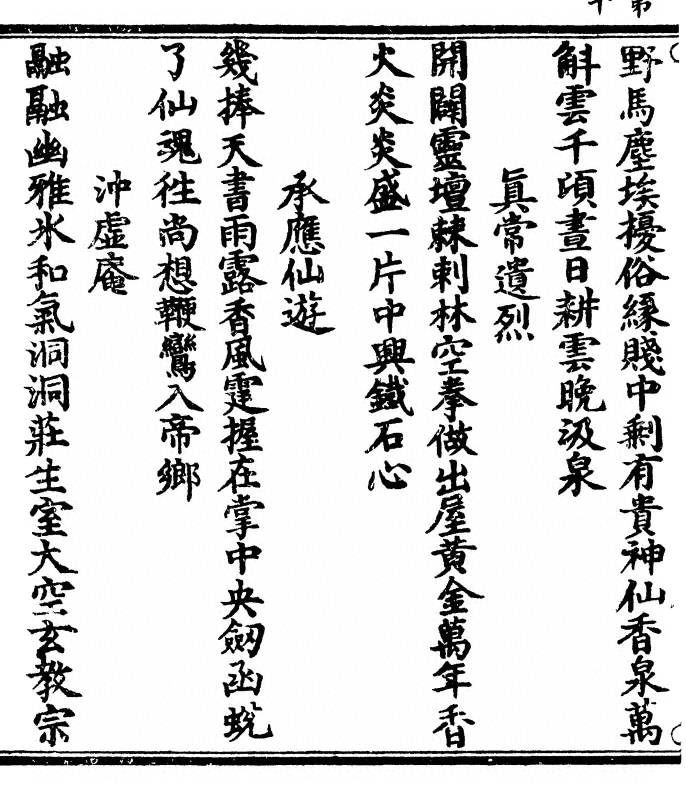 野馬塵埃擾俗緣賤中剩有貴神仙香泉萬
斛雲千頃晝日耕雲晚汲泉
眞常遺烈
開闢靈壇棘刺林空拳做出屋黃金萬年香
火炎炎盛一片中興鐵石心
承應仙遊
幾捧天書雨露香風霆握在掌中央劔函蛻
了仙魂徃尚想鞭鸞入帝鄉
沖虛庵
融融幽雅氷和氣洞洞莊生室大空玄教宗